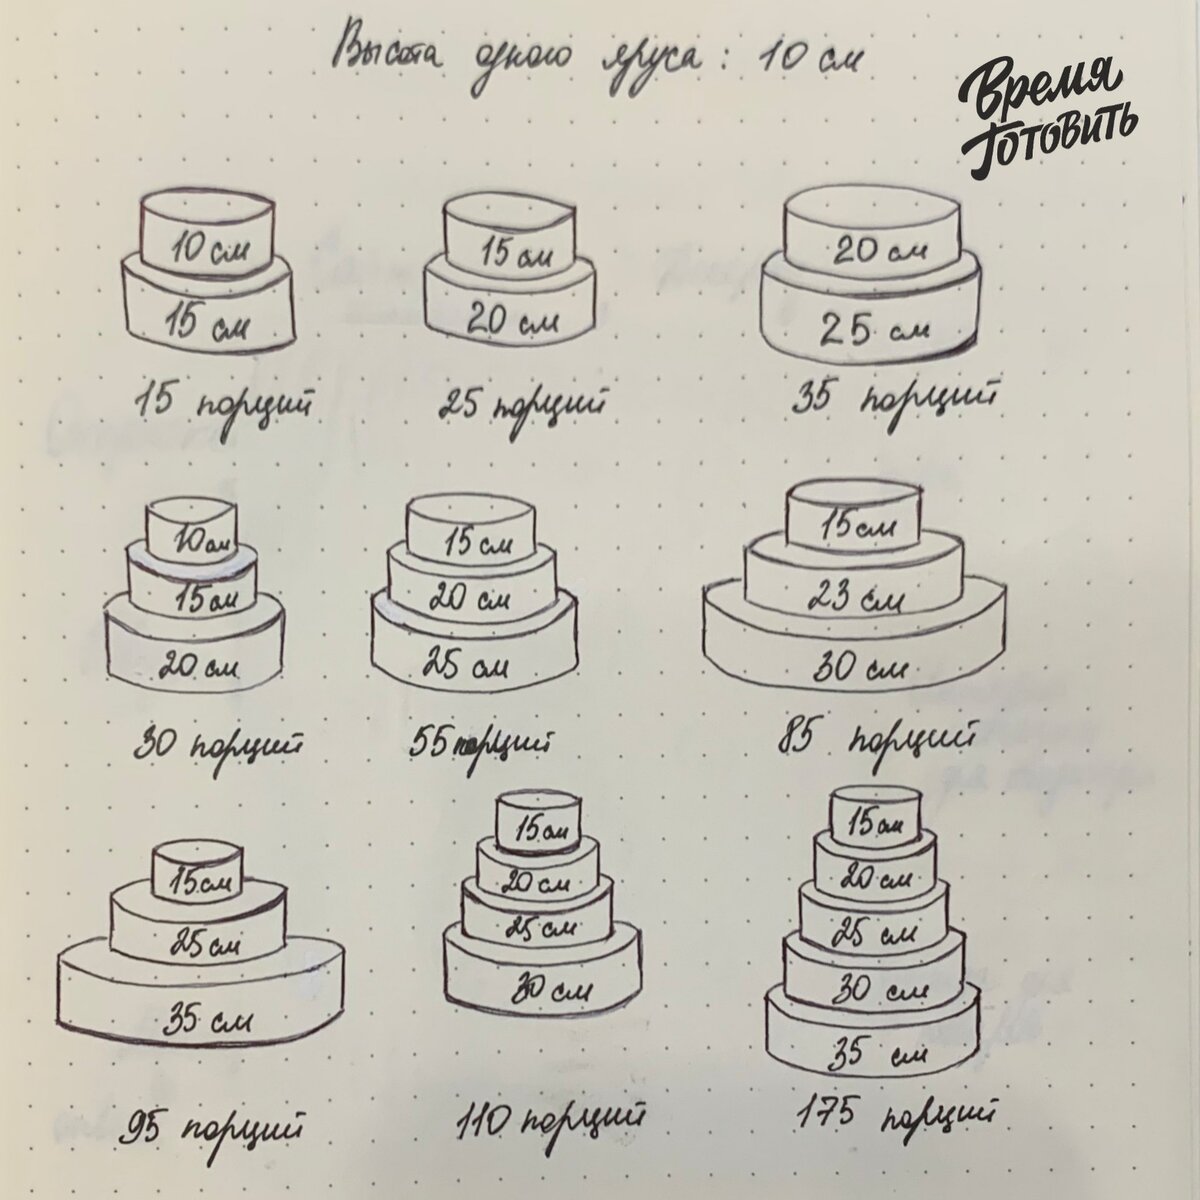 Высота одного яруса: 10 см
Время
Готовить
10 см
15 см
15 порций
15 см
20 см
25 порций
20 см
25 см
35 порций
10 см
15 см
20 см
30 порций
15 см
20 см
25 см
55 порций
15 см
23 см
30 см
85 порций
15 см
25 см
35 см
95 порций
15 см
20 см
25 см
30 см
110 порций
15 см
20 см
25 см
30 см
35 см
175 порций